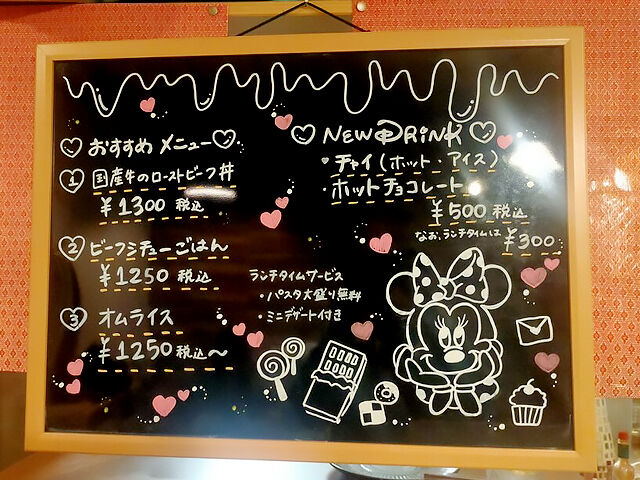 おすすめ メニュー
1 国産牛のローストビーフ丼
¥1300 税込
2 ビーフシチューごはん
¥1250 税込
3 オムライス
¥1250 税込〜
ランチタイムサービス
・パスタ大盛り無料
・ミニデザート付き
NEW DRINK
チャイ(ホット・アイス)
・ホットチョコレート
¥500 税込
なお、ランチタイムは ¥300